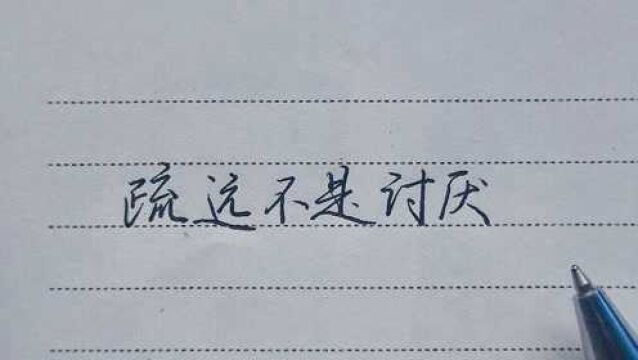 疏远不是讨厌